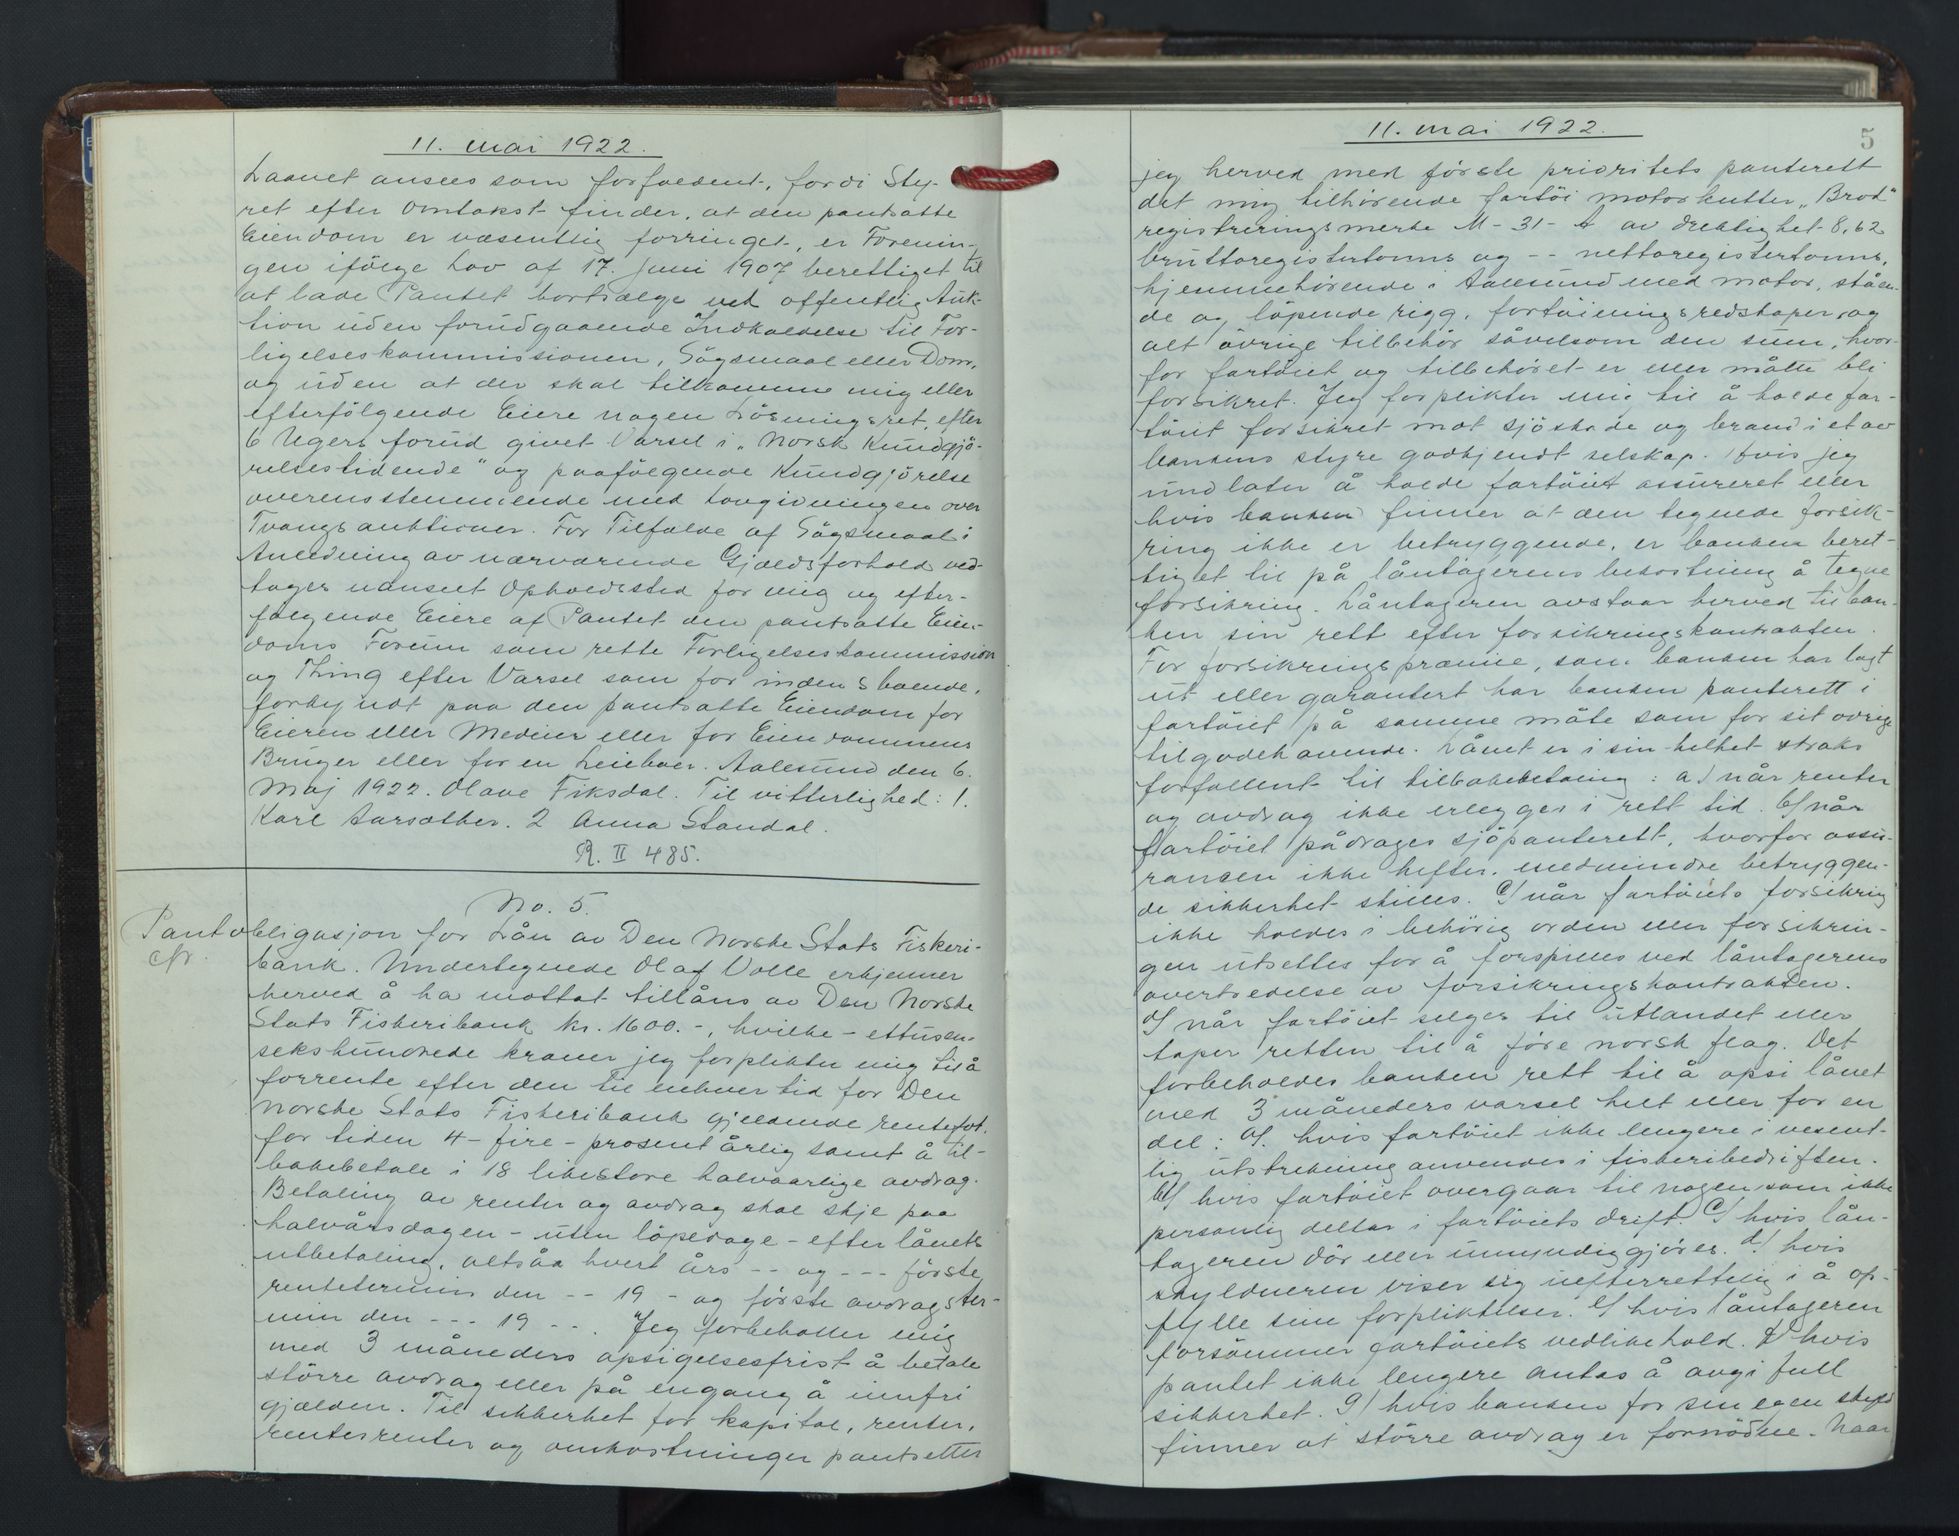 11. mai 1922.
Laanet ansees som forfaldent, fordi Sty-
ret efter Omtakst finder, at den pantsatte
Eiendom er væsentlig forringet, er Forenin-
gen ifölge Lov af 17. Juni 1907 berettiget til
at lade Pantet bortsælge ved offentlig Auk-
tion uden forudgaaende Indkaldelse til For-
ligelseskommissionen, Sögsmaal eller Dom,
og uden at der skal tilkomme mig eller
efterfölgende Eiere nogen Lösningsret, efter
6 Ugers forud givet Varsel i "Norsk Kundgjö-
relsestidende" og paafölgende Kundgjörelse
overensstemmende med Lovgivningen over
Tvangsauktioner. For Tilfælde af Sögsmaal i
Anledning av nærværende Gjældsforhold ved-
tages uanseet Opholdssted for mig og efter-
fölgende Eiere af Pantet den pantsatte Eien-
doms Forum som rette Forligelseskommission
og Thing efter Varsel som for indenbs boende,
forkyndt paa den pantsatte Eiendom for
Eieren eller Medeier eller for Eiendommens
Bruger eller for en Leieboer. Aalesund den 6.
Maj 1922. Olave Fiksdal. Til vitterlighed: 1.
Karl Aarsæther. 2 Anna Standal.
R. II 485.
No. 5.
Pantobligasjon for Lån av Den Norske Stats Fiskeri-
cfr.
bank. Undertegnede Olaf Valle erkjenner
herved å ha mottat tillåns av Den Norske
Stats Fiskeribank kr. 1600.-, hvilke - ettusen-
sekshundrede kroner jeg forplikter mig til å
forrente efter den til enhver tid for Den
Norske Stats Fiskeribank gjeldende rentefot.
for tiden 4 - fire - prosent årlig samt å til-
bakebetale i 18 likestore halvaarlige avdrag.
Betaling av renter og avdrag skal skje paa
halvårsdagen - uten löpedage - efter lånets
utbetaling, altsåa hvert års -- og --- förste
rentetermin den -- 19 - og förste avdragster-
min den --- 19 --. Jeg forbeholder mig
med 3 måneders opsigelsesfrist å betale
större avdrag eller på engang å innfri
gjælden. Til sikkerhet for kapital, renter,
rentersrenter og omkostninger pantsetter
11. mai 1922.
5
jeg herved med förste prioritets panterett
det mig tilhörende fartöi motorkutter "Brod"
registreringsmerke M - 31 - A av drektighet 8,62
bruttoregistertonns og -- nettoregistertonns,
hjemmehörende i Aalesund med motor, ståen-
de og löpende rigg, fortöiningsredskaper og
alt övrige tilbehör såvelsom den sum, hvor-
for fartöiet og tilbehöret er eller måtte bli
forsikret. Jeg forplikter mig til å holde far-
töiet forsikret mot sjöskade og brand i et av
bankens styre godkjendt selskap. Hvis jeg
undlater å holde fartöiet assureret eller
hvis banken finner at den tegnede forsik-
ring ikke er betryggende, er banken beret-
tiget til på låntagerens bekostning å tegne
forsikring. Låntageren avstaar herved til ban-
ken sin rett efter forsikringskontrakten.
For forsikringspræmie, som banken har lagt
ut eller garantert har banken panterett i
fartöiet på samme måte som for sit övrige
tilgodehavende. Lånet er i sin helhet straks
forfallent til tilbakebetaling: a/ når renter
og avdrag ikke erlegges i rett tid. b/ når
fartöiet pådrages sjöpanterett, hvorfor assu-
ransen ikke hefter, medmindre betryggen-
de sikkerhet stilles. c/ når fartöiets forsikring
ikke holdes i behörig orden eller forsikrin-
gen utsettes for å forspilles ved låntagerens
overtredelse av forsikringskontrakten.
d/ når fartöiet selges til utlandet eller
taper retten til å före norsk flag. Det
forbeholdes banken rett til å opsi lånet
med 3 måneders varsel helt eller for en
del: a/. hvis fartöiet ikke lengere i vesent-
lig utstrekning anvendes i fiskeribedriften.
b/ hvis fartöiet overgaar til nogen som ikke
personlig deltar i fartöiets drift. c/ hvis lån-
tageren dör eller umyndiggjöres. d/ hvis
skyldneren viser sig uefterrettelig i å op-
fylle sine forpliktelser. e/ hvis låntageren
forsömmer fartöiets vedlikehold. f/ hvis
pantet ikke lengere antas å avgi full
sikkerhet. g/ hvis banken for sin egen skyld
finner at större avdrag er fornödne. Naar